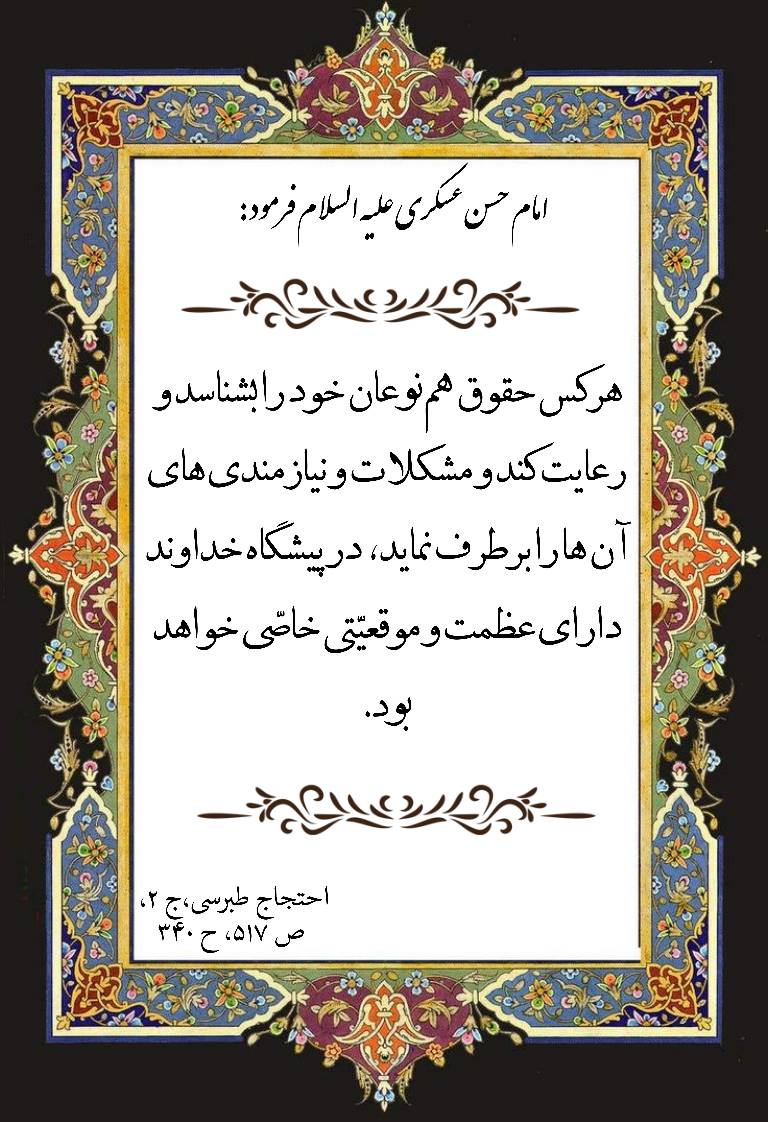 امام حسن عسکری علیه السلام فرمود:
هر کس حقوق هم نوعان خود را بشناسد و
رعایت کند و مشکلات و نیازمندی های
آن ها را برطرف نماید، در پیشگاه خداوند
دارای عظمت و موقعیّتی خاصّی خواهد
بود.
احتجاج طبرسی،ج ۲،
ص ۵۱۷، ح ۳۴۰